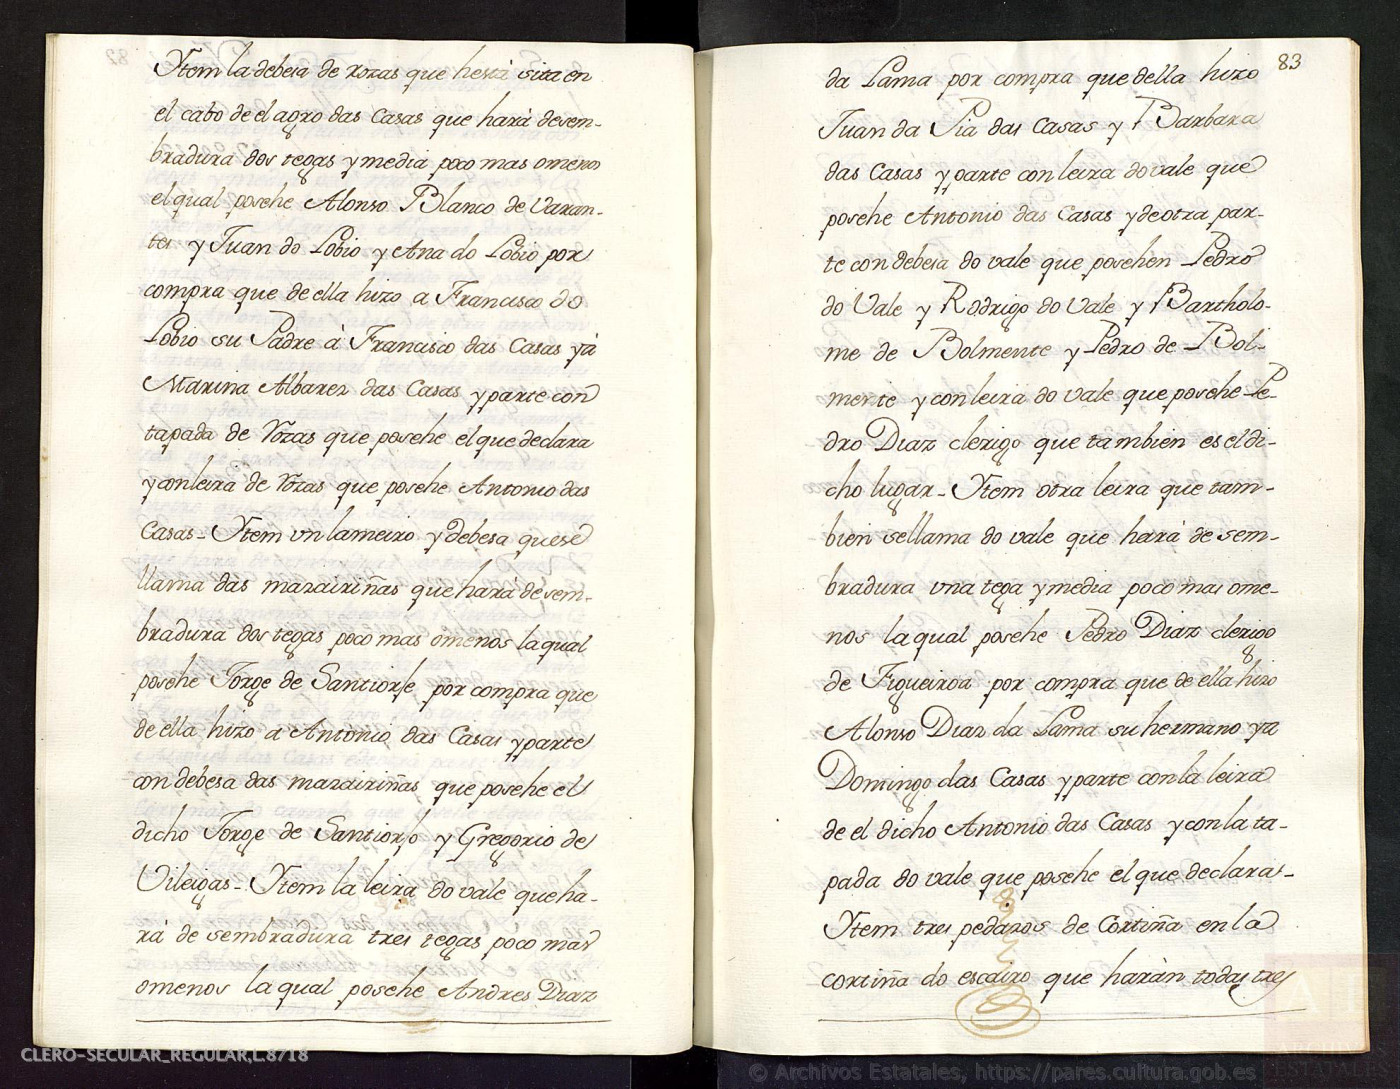 Ytem la debesa de rozas que hestá sita en
el cabo de el agro das Casas que hará de sem-
bradura dos tegas y media poco mas o menos
el qual posehe Alonso Blanco de Varan-
tes y Juan do Lobio y Ana do Lobio por
compra que de ella hizo a Francisco do
Lobio su Padre à Francisco das Casas y à
Marina Albarez das Casas y parte con
tapada de Rozas que posehe el que declara
y con leira de Rozas que posehe Antonio das
Casas - Ytem vn lameiro y debesa que se
llama das mazairiñas que hará de sem-
bradura dos tegas poco mas o menos la qual
posehe Jorge de Santiorjo por compra que
de ella hizo a Antonio das Casas y parte
con debesa das mazairiñas que posehe el
dicho Jorge de Santiorjo y Gregorio de
Vileigas - Ytem la leira do vale que ha-
rá de sembradura tres tegas poco mas
o menos la qual posehe Andres Diaz
83
da Lama por compra que della hizo
Juan da Pia das Casas y Barbara
das Casas y parte con leira do vale que
posehe Antonio das Casas y de otra par-
te con debesa do vale que posehen Pedro
do Vale y Rodrigo do Vale y Bartholo-
me de Bolmente y Pedro de Bol-
mente y con leira do vale que posehe Pe-
dro Diaz clerigo que tambien es el di-
cho lugar - Ytem otra leira que tam-
bien se llama do vale que hará de sem-
bradura una tega y media poco mas o me-
nos la qual posehe Pedro Diaz clerigo
de Figueiroa por compra que de ella hizo
Alonso Diaz da Lama su hermano y a
Domingo das Casas y parte con la leira
de el dicho Antonio das Casas y con la ta-
pada do vale que posehe el que declara -
Ytem tres pedazos de Cortiña en la
cortiña do escairo que harán todas tres
CLERO-SECULAR_REGULAR,L.8718
© Archivos Estatales, https://pares.cultura.gob.es